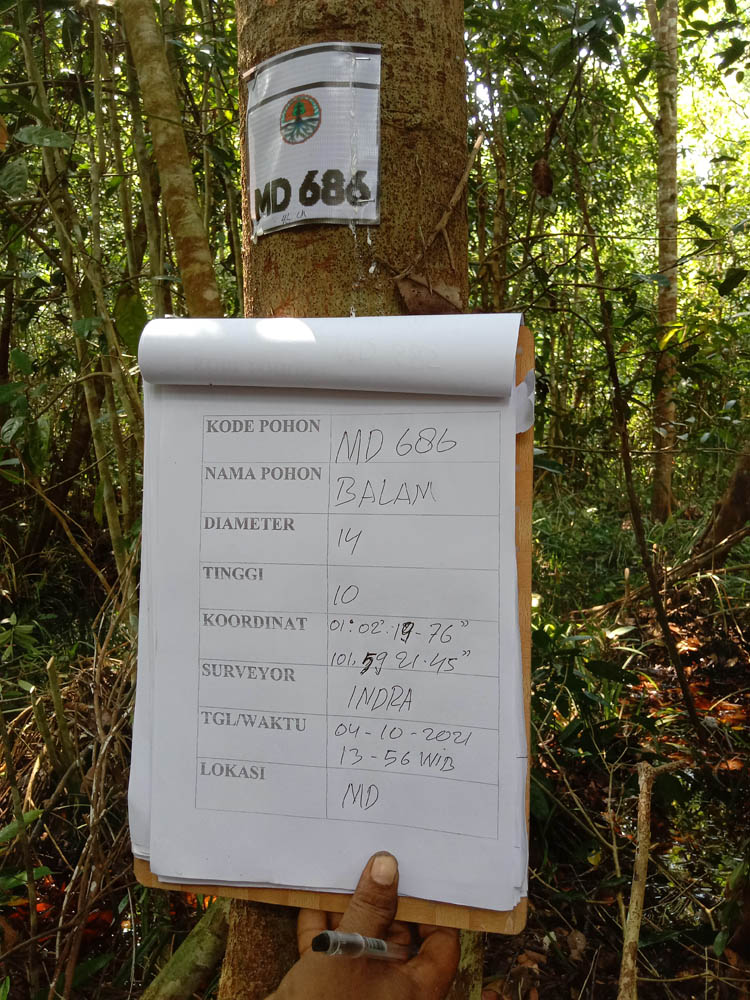 MD 686
KODE POHON MD 686
NAMA POHON BALAM
DIAMETER 14
TINGGI 10
KOORDINAT 01° 02' 19-76"
101. 59 21.45"
SURVEYOR INDRA
TGL/WAKTU 04-10-2021
13-56 WIB
LOKASI MD